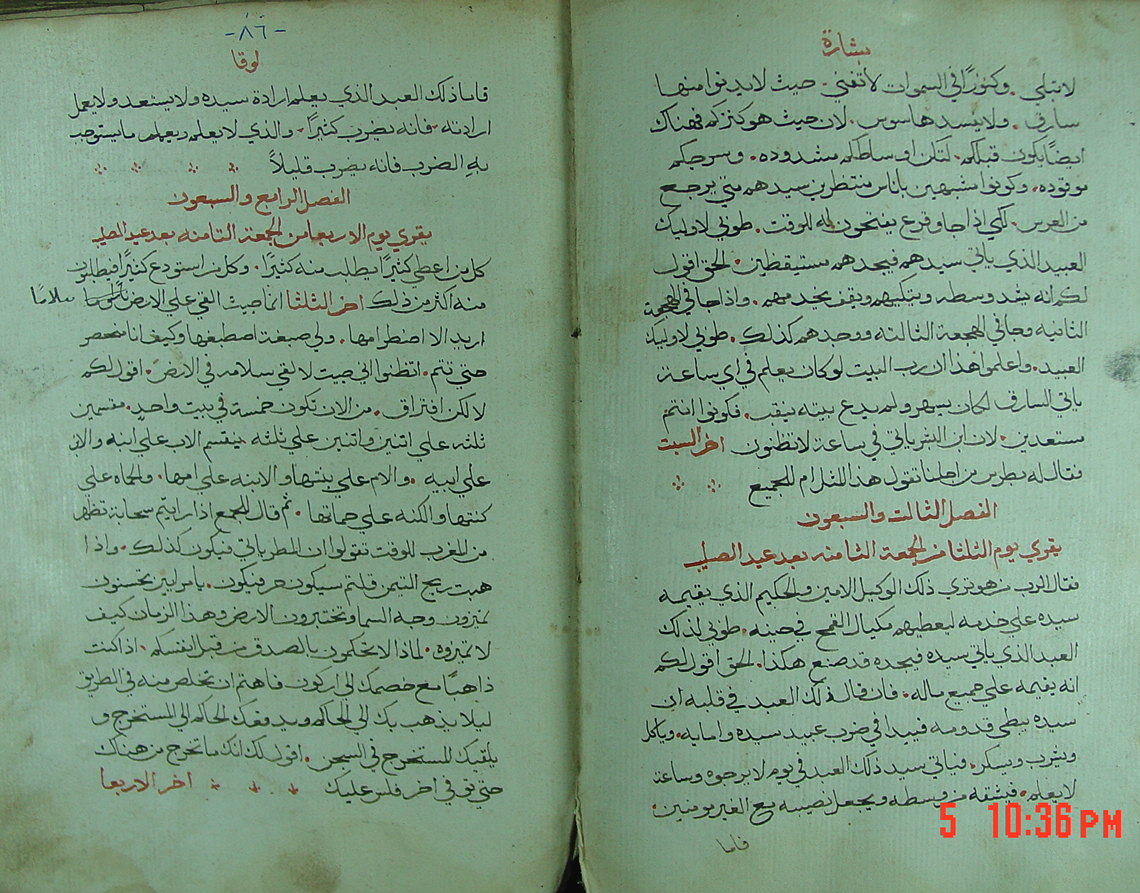 بشارة
لا تبلي ٠ وكنوزًا في السموات لا تفني ٠ حيث لا يدنوا منها
سارق ٠ ولا يفسدها سوس ٠ لان حيث هو كنزكم فهناك
ايضًا يكون قلبكم ٠ لتكن اوساطكم مشدوده ٠ وسرجكم
موقوده ٠ وكونوا مشبهين باناس منتظرين سيدهم متي يرجع
من العرس ٠ لكي اذا جا وقرع يفتحون له للوقت ٠ طوبي لاوليك
العبيد الذي ياتي سيدهم فيجدهم مستيقظين ٠ الحق اقول
لكم انه يشد وسطه ويتكيهم ويقف يخدمهم ٠ واذا جا في الهجعة
الثانيه وجا في الهجعة الثالثه ووجدهم كذلك ٠ طوبي لاوليك
العبيد ٠ واعلموا هذا ان رب البيت لو كان يعلم في اي ساعة
ياتي السارق لكان يسهر ولم يدع بيته ينقب ٠ فكونوا انتم
مستعدين ٠ لان ابن البشر ياتي في ساعة لا تظنون اخر السبت
فقال له بطرس من اجلنا تقول هذا المثل ام للجميع
الفصل الثالت والسبعون
يقري يوم الثلثا من الجمعة الثامنه بعد عيد الصليب
فقال الرب من هو تري ذلك الوكيل الامين والحكيم الذي يقيمه
سيده علي خدمه ليعطيهم مكيال القمح في حينه ٠ طوبي لذلك
العبد الذي ياتي سيده فيجده قد صنع هكذا ٠ الحق اقول لكم
انه يقيمه علي جميع ماله ٠ فان قال ذلك العبد في قلبه ان
سيده يبطي قدومه فيبدا في ضرب عبيد سيده وامايه ٠ وياكل
ويشرب ويسكر ٠ فياتي سيد ذلك العبد في يوم لا يرجوه وساعة
لا يعلم ٠ فيشقه من وسطه ويجعل نصيبه مع الغير يومنين ٠
فاما
-٨٦-
لوقا
فاما ذلك العبد الذي يعلم ارادة سيده ولا يستعد ولا يعمل
ارادته ٠ فانه يضرب كثيرًا ٠ والذي لا يعلم ويعمل ما يستوجب
به الضرب فانه يضرب قليلاً
الفصل الرابع والسبعون
يقري يوم الاربعا من الجمعة الثامنه بعد عيد الصليب
كل من اعطي كثيرًا يطلب منه كثيرًا ٠ وكل من استودع كثيرًا فيطلبون
منه اكثر من ذلك اخر الثلثا انما جيت القي علي الارض نارًا وما
اريد الا اضطرامها ٠ ولي صبغة اصطبغها وكيف انا منحصر
حتي تتم ٠ اتظنوا اني جيت لالقي سلامه في الارض ٠ اقول لكم
لا لكن افتراق ٠ من الان تكون خمسة في بيت واحد ٠ منقسمين
ثلثه علي اتنين واتنين علي ثلثه ينقسم الاب علي ابنه والابن
علي ابيه ٠ والام علي بنتها والابنه علي امها ٠ والحماه علي
كنتها والكنه علي حماتها ٠ ثم قال للجمع اذا رايتم سحابة تظهر
من المغرب للوقت تقولوا ان المطر ياتي فيكون كذلك ٠ واذا
هبت ريح التيمن قلتم سيكون حر فيكون ٠ يا مرايين تحسنون
تميزون وجه السما وتختبرون الارض وهذا الزمان كيف
لا تميزوه ٠ لماذا لا تحكمون بالصدق من قبل انفسكم ٠ اذا كنت
ذاهبًا مع خصمك الي اركون فاهتم ان تخلص منه في الطريق
ليلا يذهب بك الي الحاكم ويدفعك الحاكم الي المستخرج و
يلقيك المستخرج في السجن ٠ اقول لك انك ما تخرج من هناك
حتي توفي اخر فلس عليك اخر الاربعا
5 10:36 PM